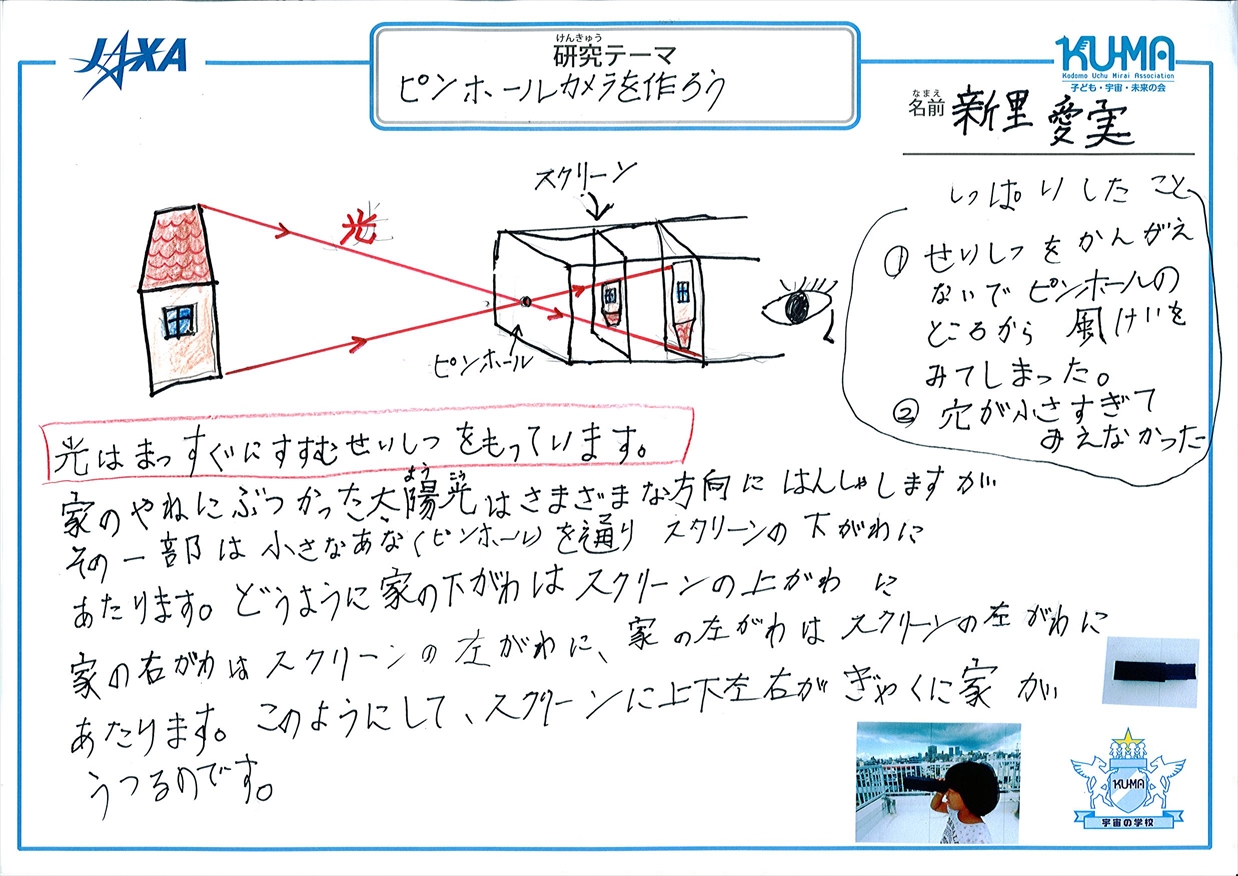 JAXA
けんきゅう
研究テーマ
ピンホールカメラを作ろう
KU-MA
Kodomo Uchu Mirai Association
子ども・宇宙・未来の会
なまえ
名前 新里 愛実
スクリーン
光
ピンホール
しっぱいしたこと
① せいしつをかんがえ
ないでピンホールの
ところから風けいを
みてしまった。
② 穴が小さすぎて
みえなかった
光はまっすぐにすすむせいしつをもっています。
家のやねにぶつかった太陽光はさまざまな方向にはんしゃしますが
よう こう
その一部は小さなあな(ピンホール)を通り スクリーンの下がわに
あたります。どうように家の下がわはスクリーンの上がわに
家の右がわはスクリーンの左がわに、家の左がわはスクリーンの左がわに
あたります。このようにして、スクリーンに上下左右がぎゃくに家が
うつるのです。
KU-MA
宇宙の学校